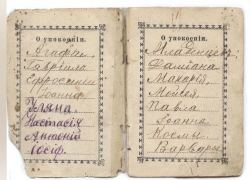 О упокоеніи.
Агафіи
Гавріила
Ефросиніи
Іоанна
Уляна
Настасія
Антоній
Іосіф.
О упокоеніи.
Младенцевъ
Даміана
Макарія,
Мойсея
Павла
Іоанна
Космы
Варвары